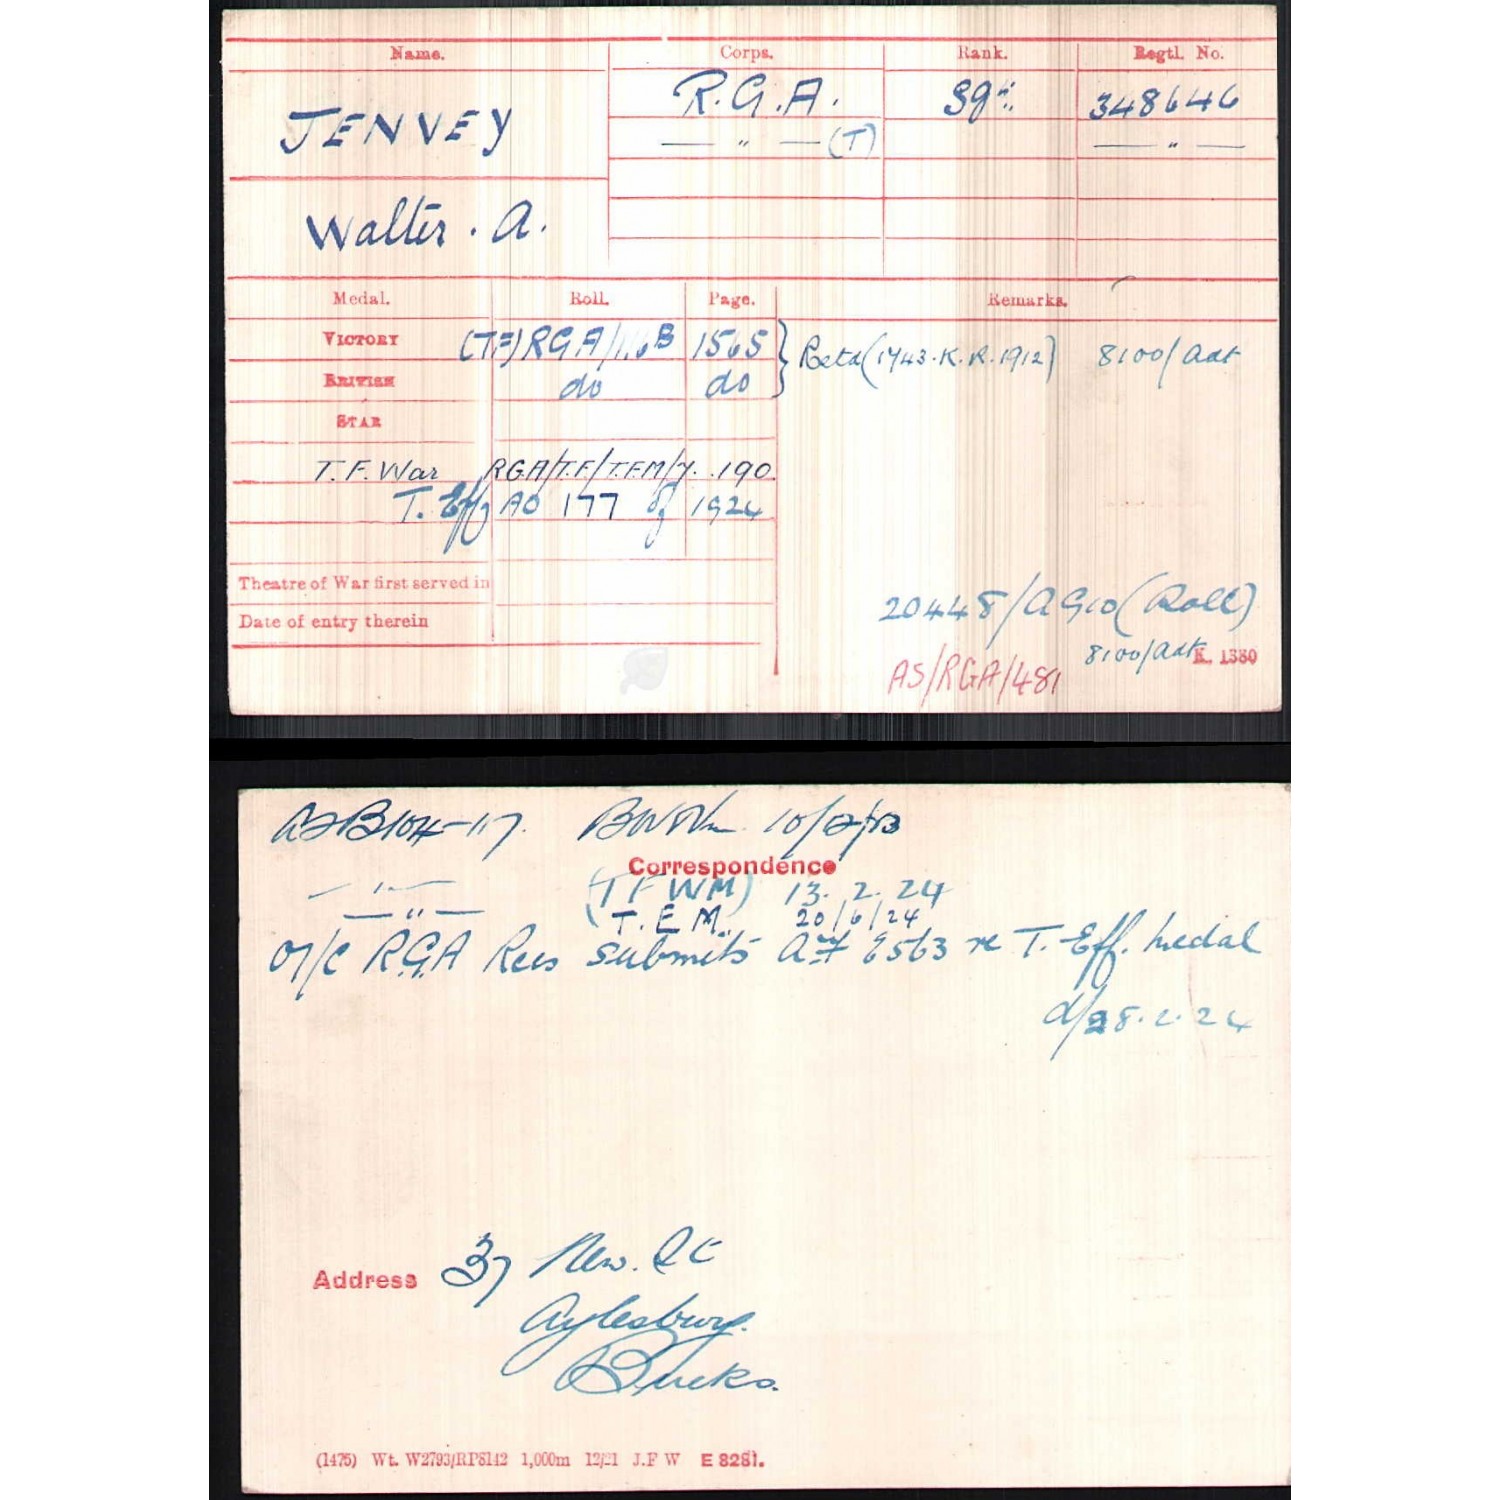 Name. Corps. Rank. Regtl. No.
JENVEY R.G.A. Sgt. 348646
— " — (T) — " —
Walter. A.
Medal. Roll. Page. Remarks.
VICTORY (TF) RGA/116B 1565 } Retd (1743. K. R. 1912) 8100/Adt
BRITISH do do
STAR
T.F. War RGA/T.F/T.F.M/7. 190
T. Eff AO 177 of 1924
Theatre of War first served in
Date of entry therein
20448/AG10 (Roll)
8100/Adt K. 1380
AS/RGA/481
B104-117. BW 10/2/23
Correspondence
— " — (T F W M) 13. 2. 24
— " — (T. E M. 20/6/24
O i/c R.G.A Recs submits AF E563 re T. Eff. medal
d/28.2.24
Address 37 New. St
Aylesbury.
Bucks.
(1475) Wt. W2793/RP8142 1,000m 12/21 J.F W E 8281.